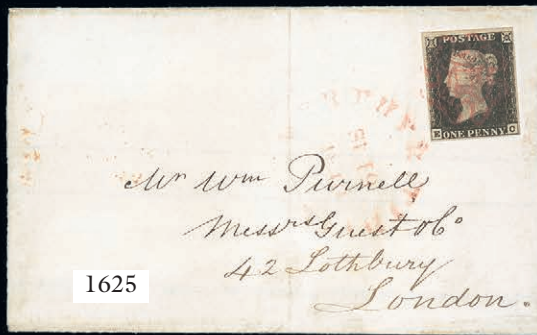 POSTAGE
E C
ONE PENNY
Mr Wm Purnell
Messrs Guest & Co
42 Lothbury
London.
1625